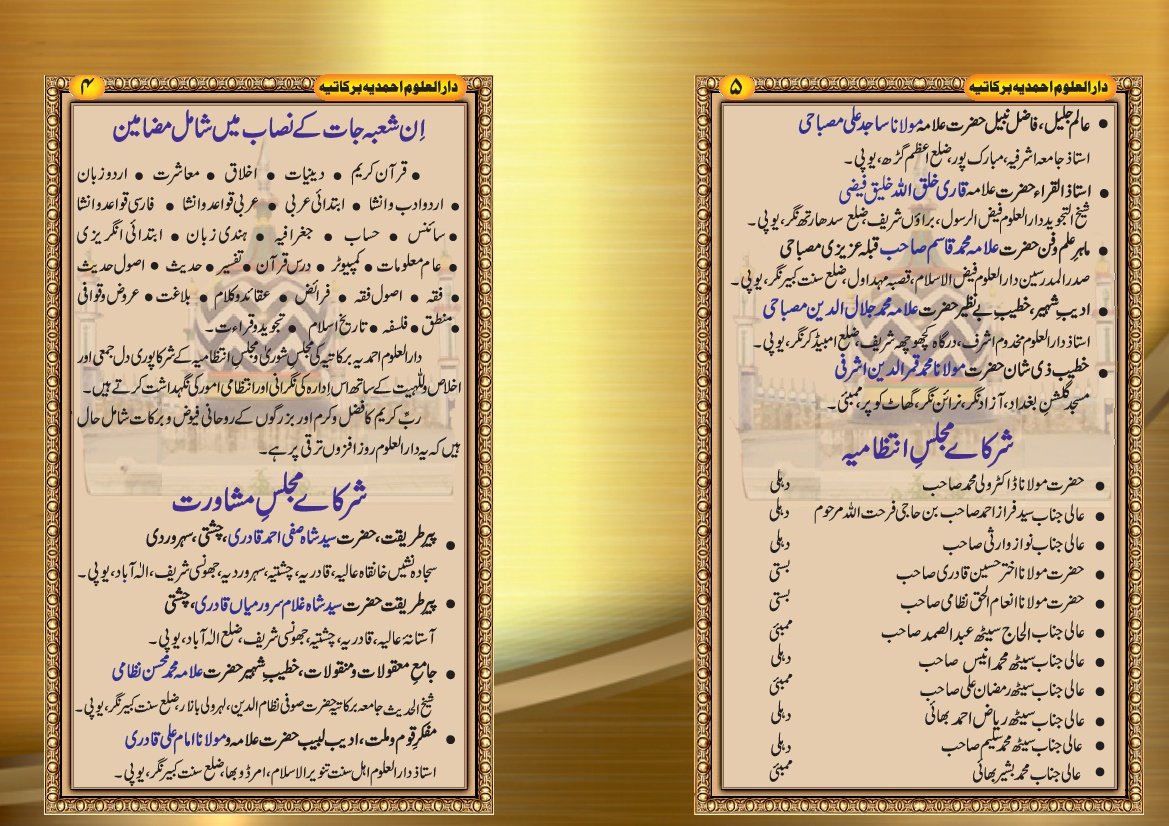 دارالعلوم احمدیہ برکاتیہ
۴
اِن شعبہ جات کے نصاب میں شامل مضامین
• قرآن کریم • دینیات • اخلاق • معاشرت • اردو زبان
• اردو ادب و انشا • ابتدائی عربی • عربی قواعد و انشا • فارسی قواعد و انشا
• سائنس • حساب • جغرافیہ • ہندی زبان • ابتدائی انگریزی
• عام معلومات • کمپیوٹر • درس قرآن • تفسیر • حدیث • اصول حدیث
• فقہ • اصول فقہ • فرائض • عقائد و کلام • بلاغت • عروض و قوافی
• منطق • فلسفہ • تاریخ اسلام • تجوید و قراءت۔
دارالعلوم احمدیہ برکاتیہ کی مجلس شوریٰ و مجلس انتظامیہ کے شرکا پوری دل جمعی اور
اخلاص و للّٰہیت کے ساتھ اس ادارہ کی نگرانی اور انتظامی امور کی نگہداشت کرتے ہیں۔
ربّ کریم کا فضل و کرم اور بزرگوں کے روحانی فیوض و برکات شامل حال
ہیں کہ یہ دارالعلوم روز افزوں ترقی پر ہے۔
شرکاے مجلسِ مشاورت
• پیرِ طریقت، حضرت سید شاہ صفی احمد قادری، چشتی، سہروردی
سجادہ نشیں خانقاہ عالیہ، قادریہ، چشتیہ، سہروردیہ، جھونسی شریف، الٰہ آباد، یوپی۔
• پیرِ طریقت حضرت سید شاہ غلام سرور میاں قادری، چشتی
آستانۂ عالیہ، قادریہ، چشتیہ، جھونسی شریف، ضلع الٰہ آباد، یوپی۔
• جامعِ معقولات و منقولات، خطیبِ شہیر حضرت علامہ محمد محسن نظامی
شیخ الحدیث جامعہ برکاتیہ حضرت صوفی نظام الدین، لہرولی بازار، ضلع سنت کبیر نگر، یوپی۔
• مفکرِ قوم و ملت، ادیب لبیب حضرت علامہ و مولانا امام علی قادری
استاذ دارالعلوم اہل سنت تنویر الاسلام، امرڈوبھا، ضلع سنت کبیر نگر، یوپی۔
دارالعلوم احمدیہ برکاتیہ
۵
• عالم جلیل، فاضل نبیل حضرت علامہ مولانا ساجد علی مصباحی
استاذ جامعہ اشرفیہ، مبارک پور، ضلع اعظم گڑھ، یوپی۔
• استاذ القراء حضرت علامہ قاری خلق اللہ خلیق فیضی
شیخ التجوید دارالعلوم فیض الرسول، براؤں شریف، ضلع سدھارتھ نگر، یوپی۔
• ماہرِ علم و فن حضرت علامہ محمد قاسم صاحب قبلہ عزیزی مصباحی
صدر المدرسین دارالعلوم فیض الاسلام، قصبہ مہداول، ضلع سنت کبیر نگر، یوپی۔
• ادیبِ شہیر، خطیبِ بے نظیر حضرت علامہ محمد جلال الدین مصباحی
استاذ دارالعلوم مخدوم اشرف، درگاہ کچھوچھہ شریف، ضلع امبیڈکر نگر، یوپی۔
• خطیب ذی شان حضرت مولانا محمد قمر الدین اشرفی
مسجد گلشنِ بغداد، آزاد نگر، نرائن نگر، گھاٹ کوپر، ممبئی۔
شرکاے مجلسِ انتظامیہ
• حضرت مولانا ڈاکٹر ولی محمد صاحب دہلی
• عالی جناب سید فراز احمد صاحب بن حاجی فرحت اللہ مرحوم دہلی
• عالی جناب نواز وارثی صاحب دہلی
• حضرت مولانا اختر حسین قادری صاحب بستی
• حضرت مولانا انعام الحق نظامی صاحب بستی
• عالی جناب الحاج سیٹھ عبد الصمد صاحب ممبئی
• عالی جناب سیٹھ محمد انیس صاحب دہلی
• عالی جناب سیٹھ رمضان علی صاحب ممبئی
• عالی جناب سیٹھ ریاض احمد بھائی دہلی
• عالی جناب سیٹھ محمد سلیم صاحب دہلی
• عالی جناب محمد بشیر بھائی ممبئی